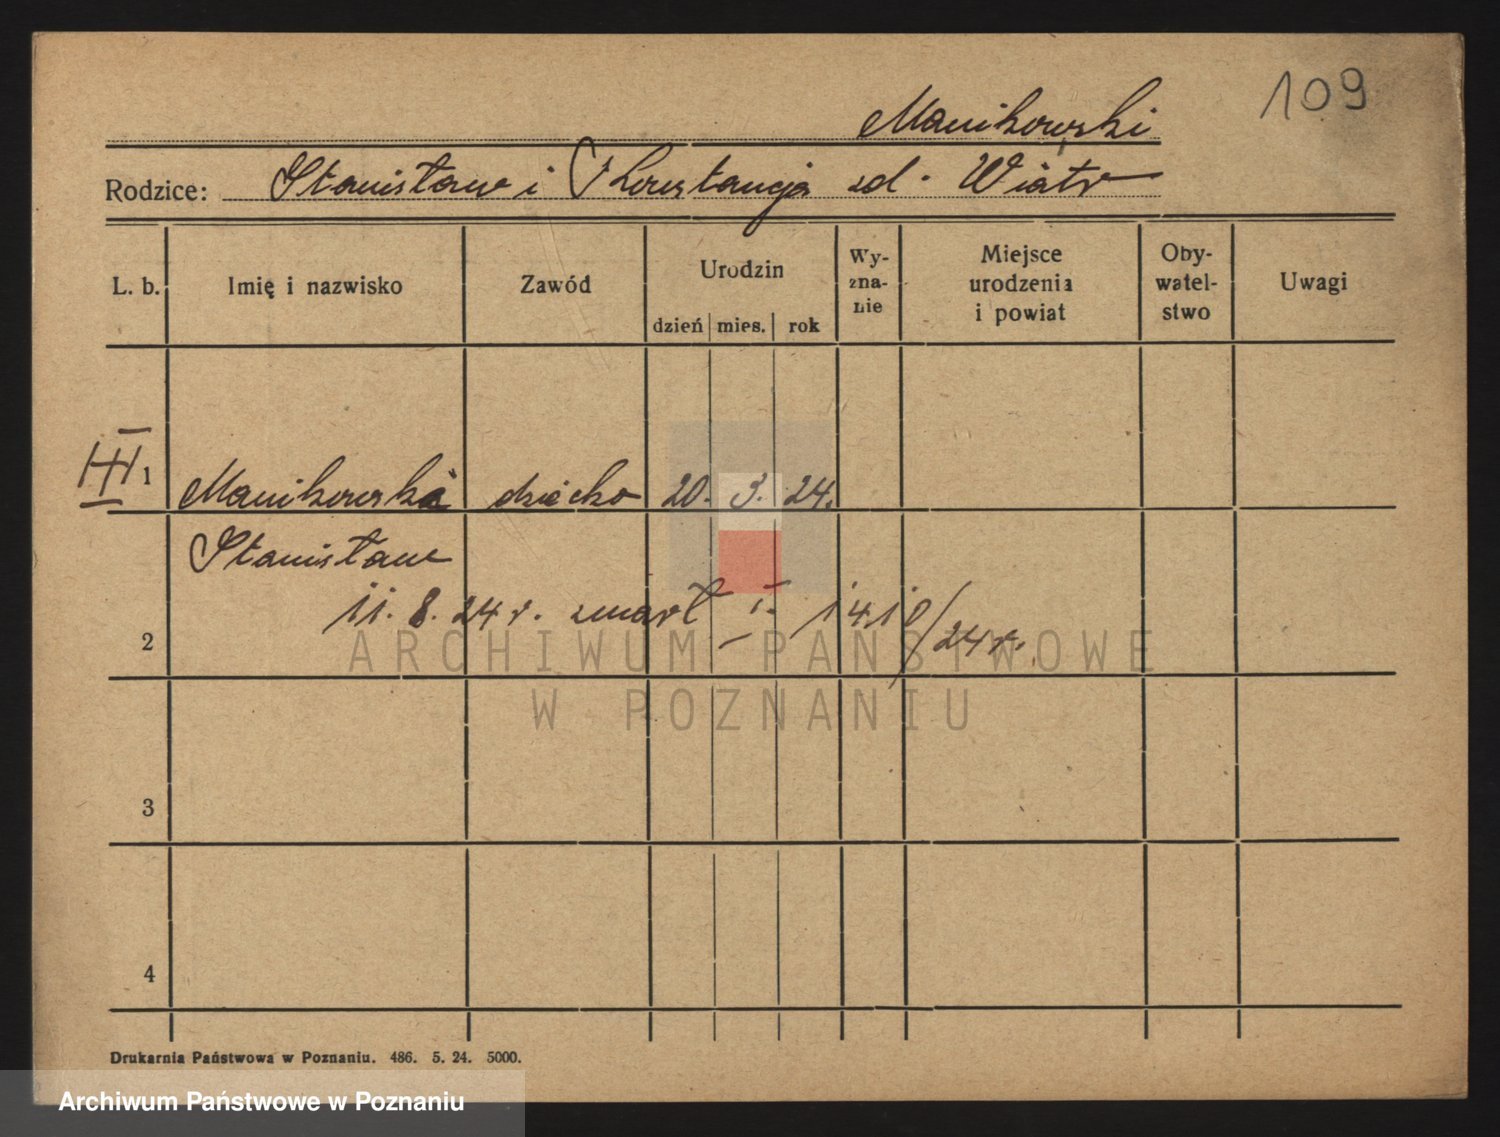 109
Manikowski
Rodzice: Stanisław i Konstancja zd. Wiatr
L. b. Imię i nazwisko Zawód Urodzin Wy-zna-nie Miejsce urodzenia i powiat Oby-watel-stwo Uwagi
dzień mies. rok
III 1 Manikowski dziecko 20. 3. 24.
Stanisław
11. 8. 24 r. zmarł I. 1410/24 r.
2
ARCHIWUM PAŃSTWOWE
W POZNANIU
3
4
Drukarnia Państwowa w Poznaniu. 486. 5. 24. 5000.
Archiwum Państwowe w Poznaniu